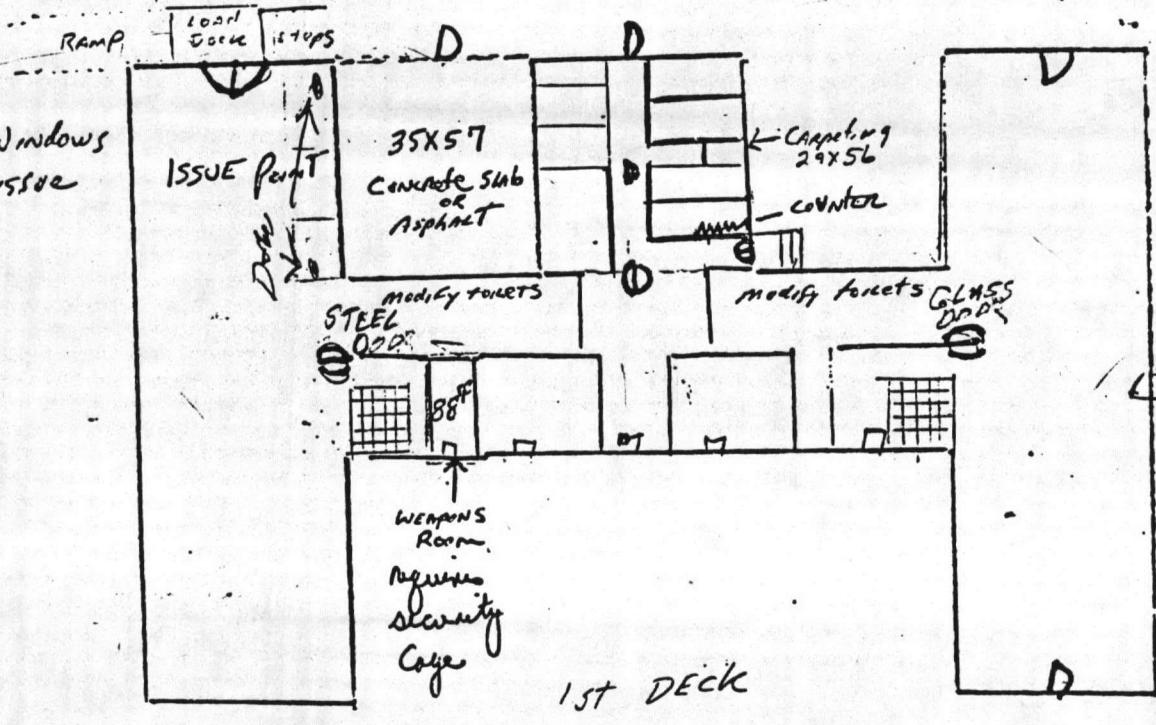 LOAD
DOCK
RAMP
STOPS
Windows
ISSUE Point
35X57
CONCRETE SLAB
OR
ASPHALT
CARPETING
29X56
COUNTER
modify toilets
modify toilets
STEEL
DOOR
GLASS
DOOR
WEAPONS
ROOM
requires
security
Cage
1ST DECK